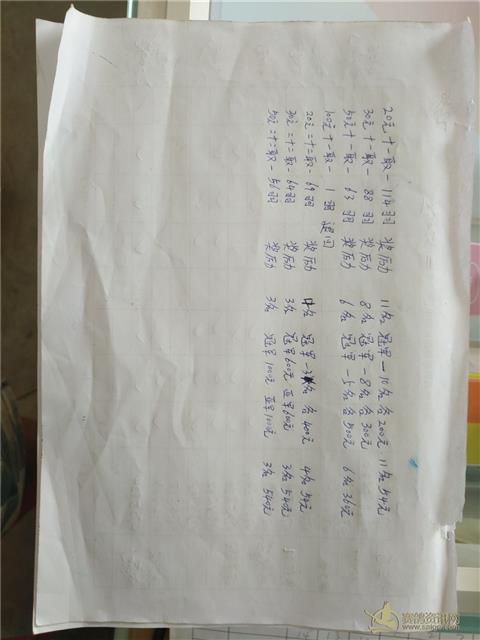 20元十一取一 114羽 奖历力 11名 冠军一10名各200元 11名54元
30元十一取一 88羽 奖历力 8名 冠军一8名各300元
50元十一取一 63羽 奖历力 6名 冠军一5名各500元 6名360元
100元十一取一 1羽 退回
20元=十二取一 69羽 奖历力 4名 冠军一3名各400元 4名54元
30元=十二取一 64羽 奖历力 3名 冠军600元 亚军600元 3名540元
50元=十二取一 56羽 奖历力 3名 冠军1000元 亚军1000元 3名540元
赛鸽资讯网
www.saige.com